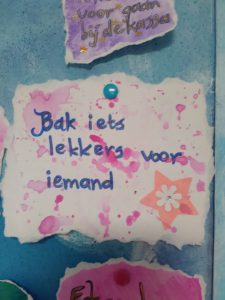 voor gaan
bij de kassa
Bak iets
lekkers voor
iemand